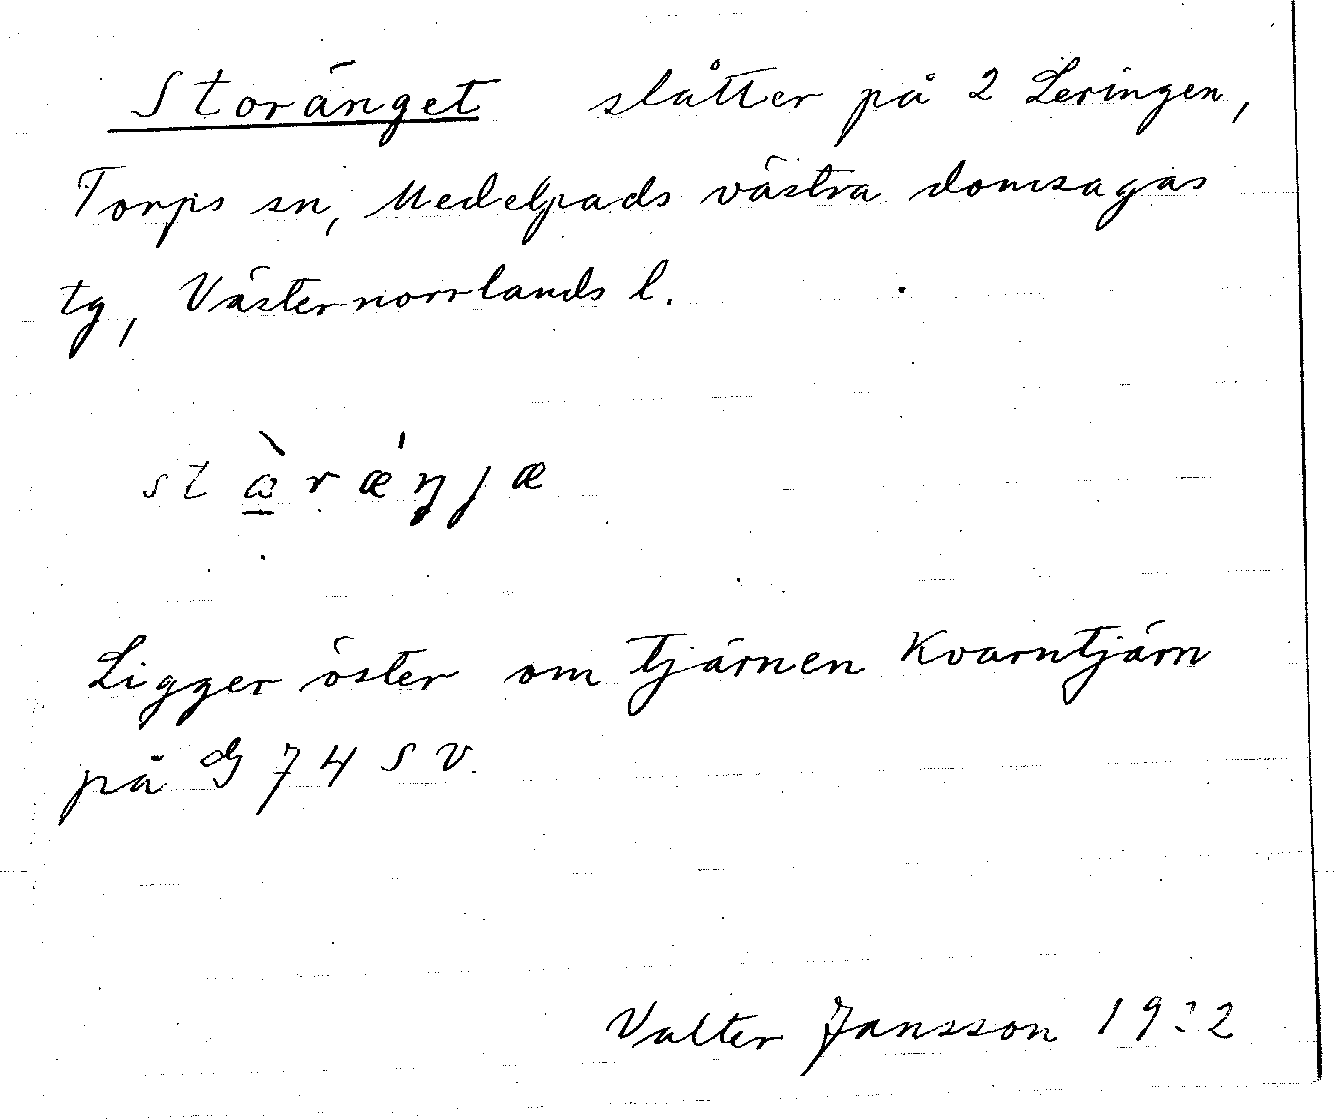 Storänget slåtter på 2 Leringen,
Torps sn, Medelpads västra domsagas
tg, Västernorrlands l.
Ligger öster om tjärnen Kvarntjärn
på G 74 S V.
Valter Jansson